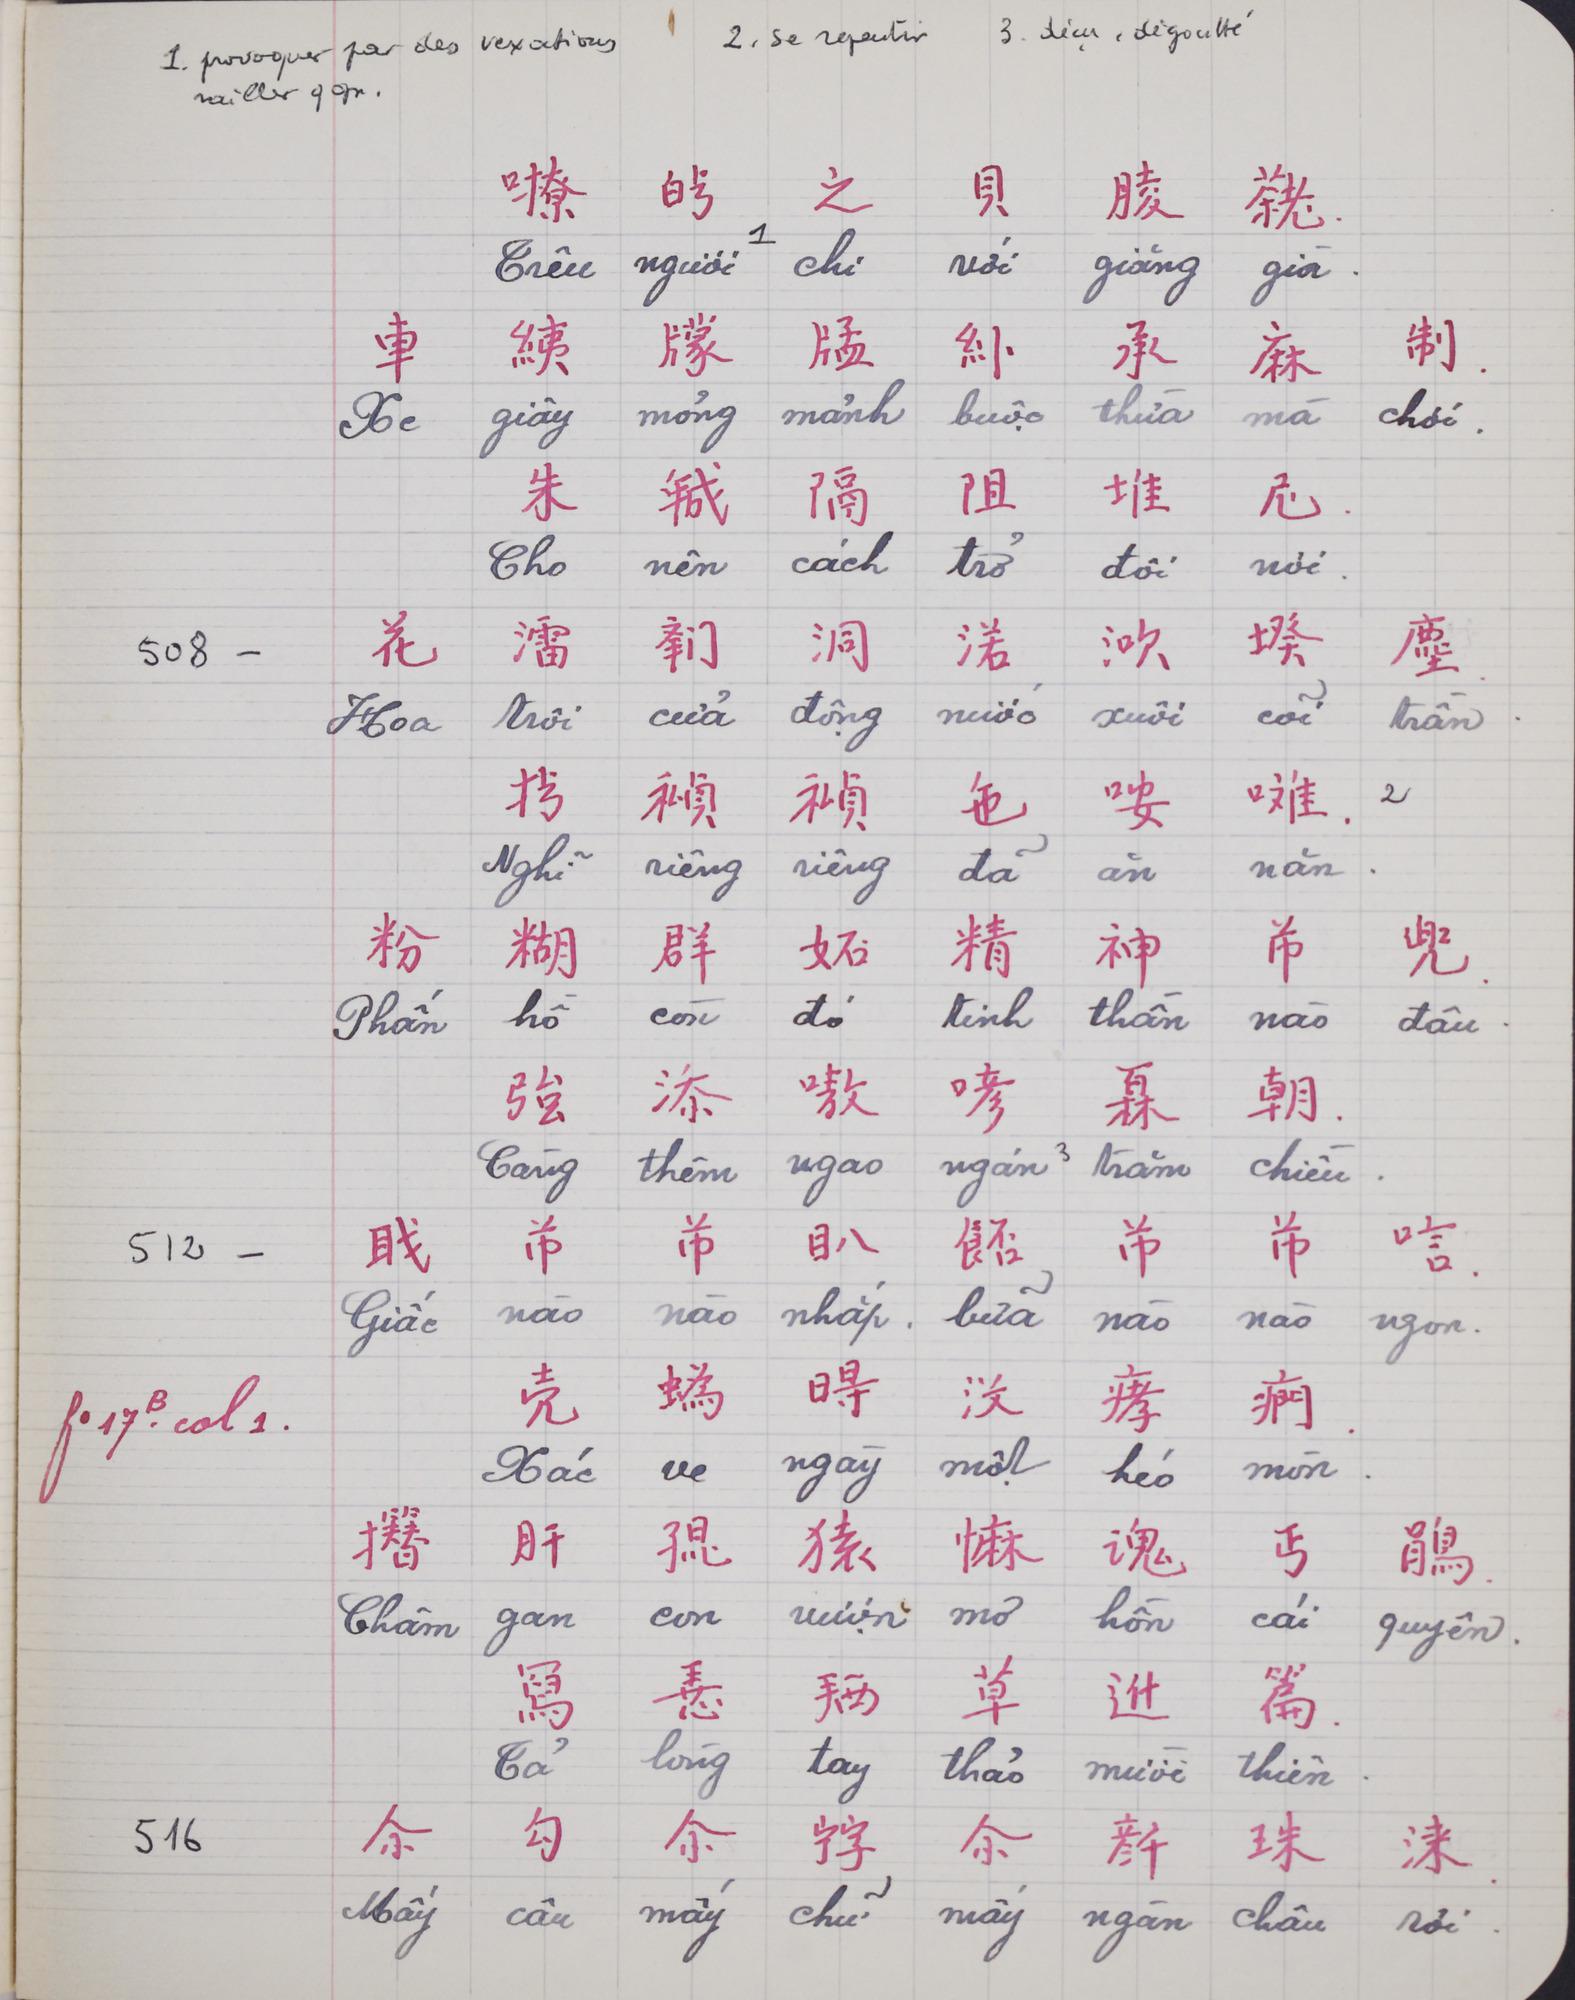 1. provoquer par des vexations 2. se repentir 3. déçu, dégoutté
railler qqn.
嘹 𠊛 之 貝 𦝄 𦓅.
Trêu người 1 chi với giăng già.
車 𦀊 𤘁 𤗲 紨 承 麻 制.
Xe giây mỏng mảnh buộc thừa mà chơi.
朱 𢧚 隔 阻 堆 尼.
Cho nên cách trở đôi nơi.
508 - 花 㵢 𨷶 洞 渃 㳄 𡎝 塵.
Hoa trôi cửa động nước xuôi cõi trần.
𢪀 禎 禎 㐌 咹 𠴊. 2
Nghĩ riêng riêng đã ăn năn.
粉 糊 群 妬 精 神 芇 兜.
Phấn hồ còn đó tinh thần nào đâu.
強 添 嗷 喭 𤾓 朝.
Càng thêm ngao ngán 3 trăm chiều.
512 - 聀 芇 芇 𥄫 𩛷 芇 芇 唁.
Giấc nào nào nhắp. bữa nào nào ngon.
fo 17 B. col 1. 壳 蟡 𣈜 没 𤹐 𤷱.
Xác ve ngày một héo mòn.
攢 肝 𡥵 猿 𢠩 魂 丐 鵑.
Châm gan con vượn mơ hồn cái quyên.
寫 𢚸 𢬣 草 𨒒 篇.
Tả lòng tay thảo mười thiên.
516 𠇍 勾 𠇍 𡨸 𠇍 𠦳 珠 淶.
Mấy câu mấy chữ mấy ngàn châu rơi.